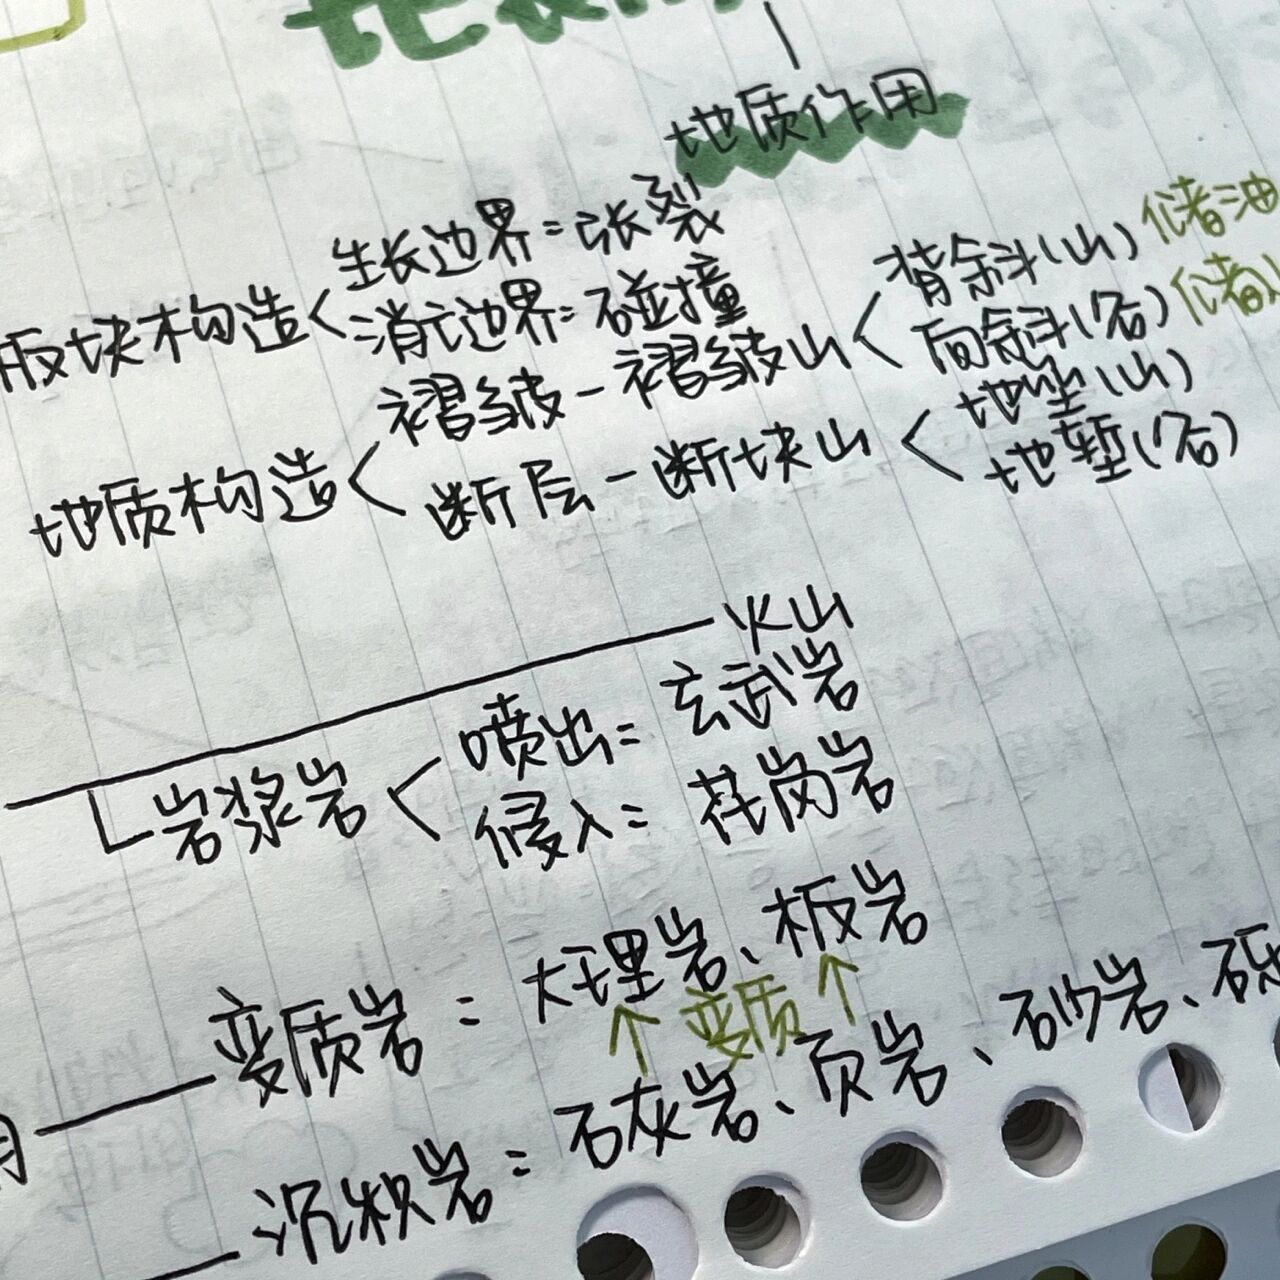 地质作用
生长边界=张裂
板块构造< 消亡边界=碰撞
背斜(山) 储油
褶皱-褶皱山< 向斜(谷) 储
地质构造< 断层-断块山< 地垒(山)
地堑(谷)
火山
岩浆岩< 喷出=玄武岩
侵入=花岗岩
变质岩=大理岩、板岩
↑变质↑
沉积岩=石灰岩、页岩、砂岩、砾
用